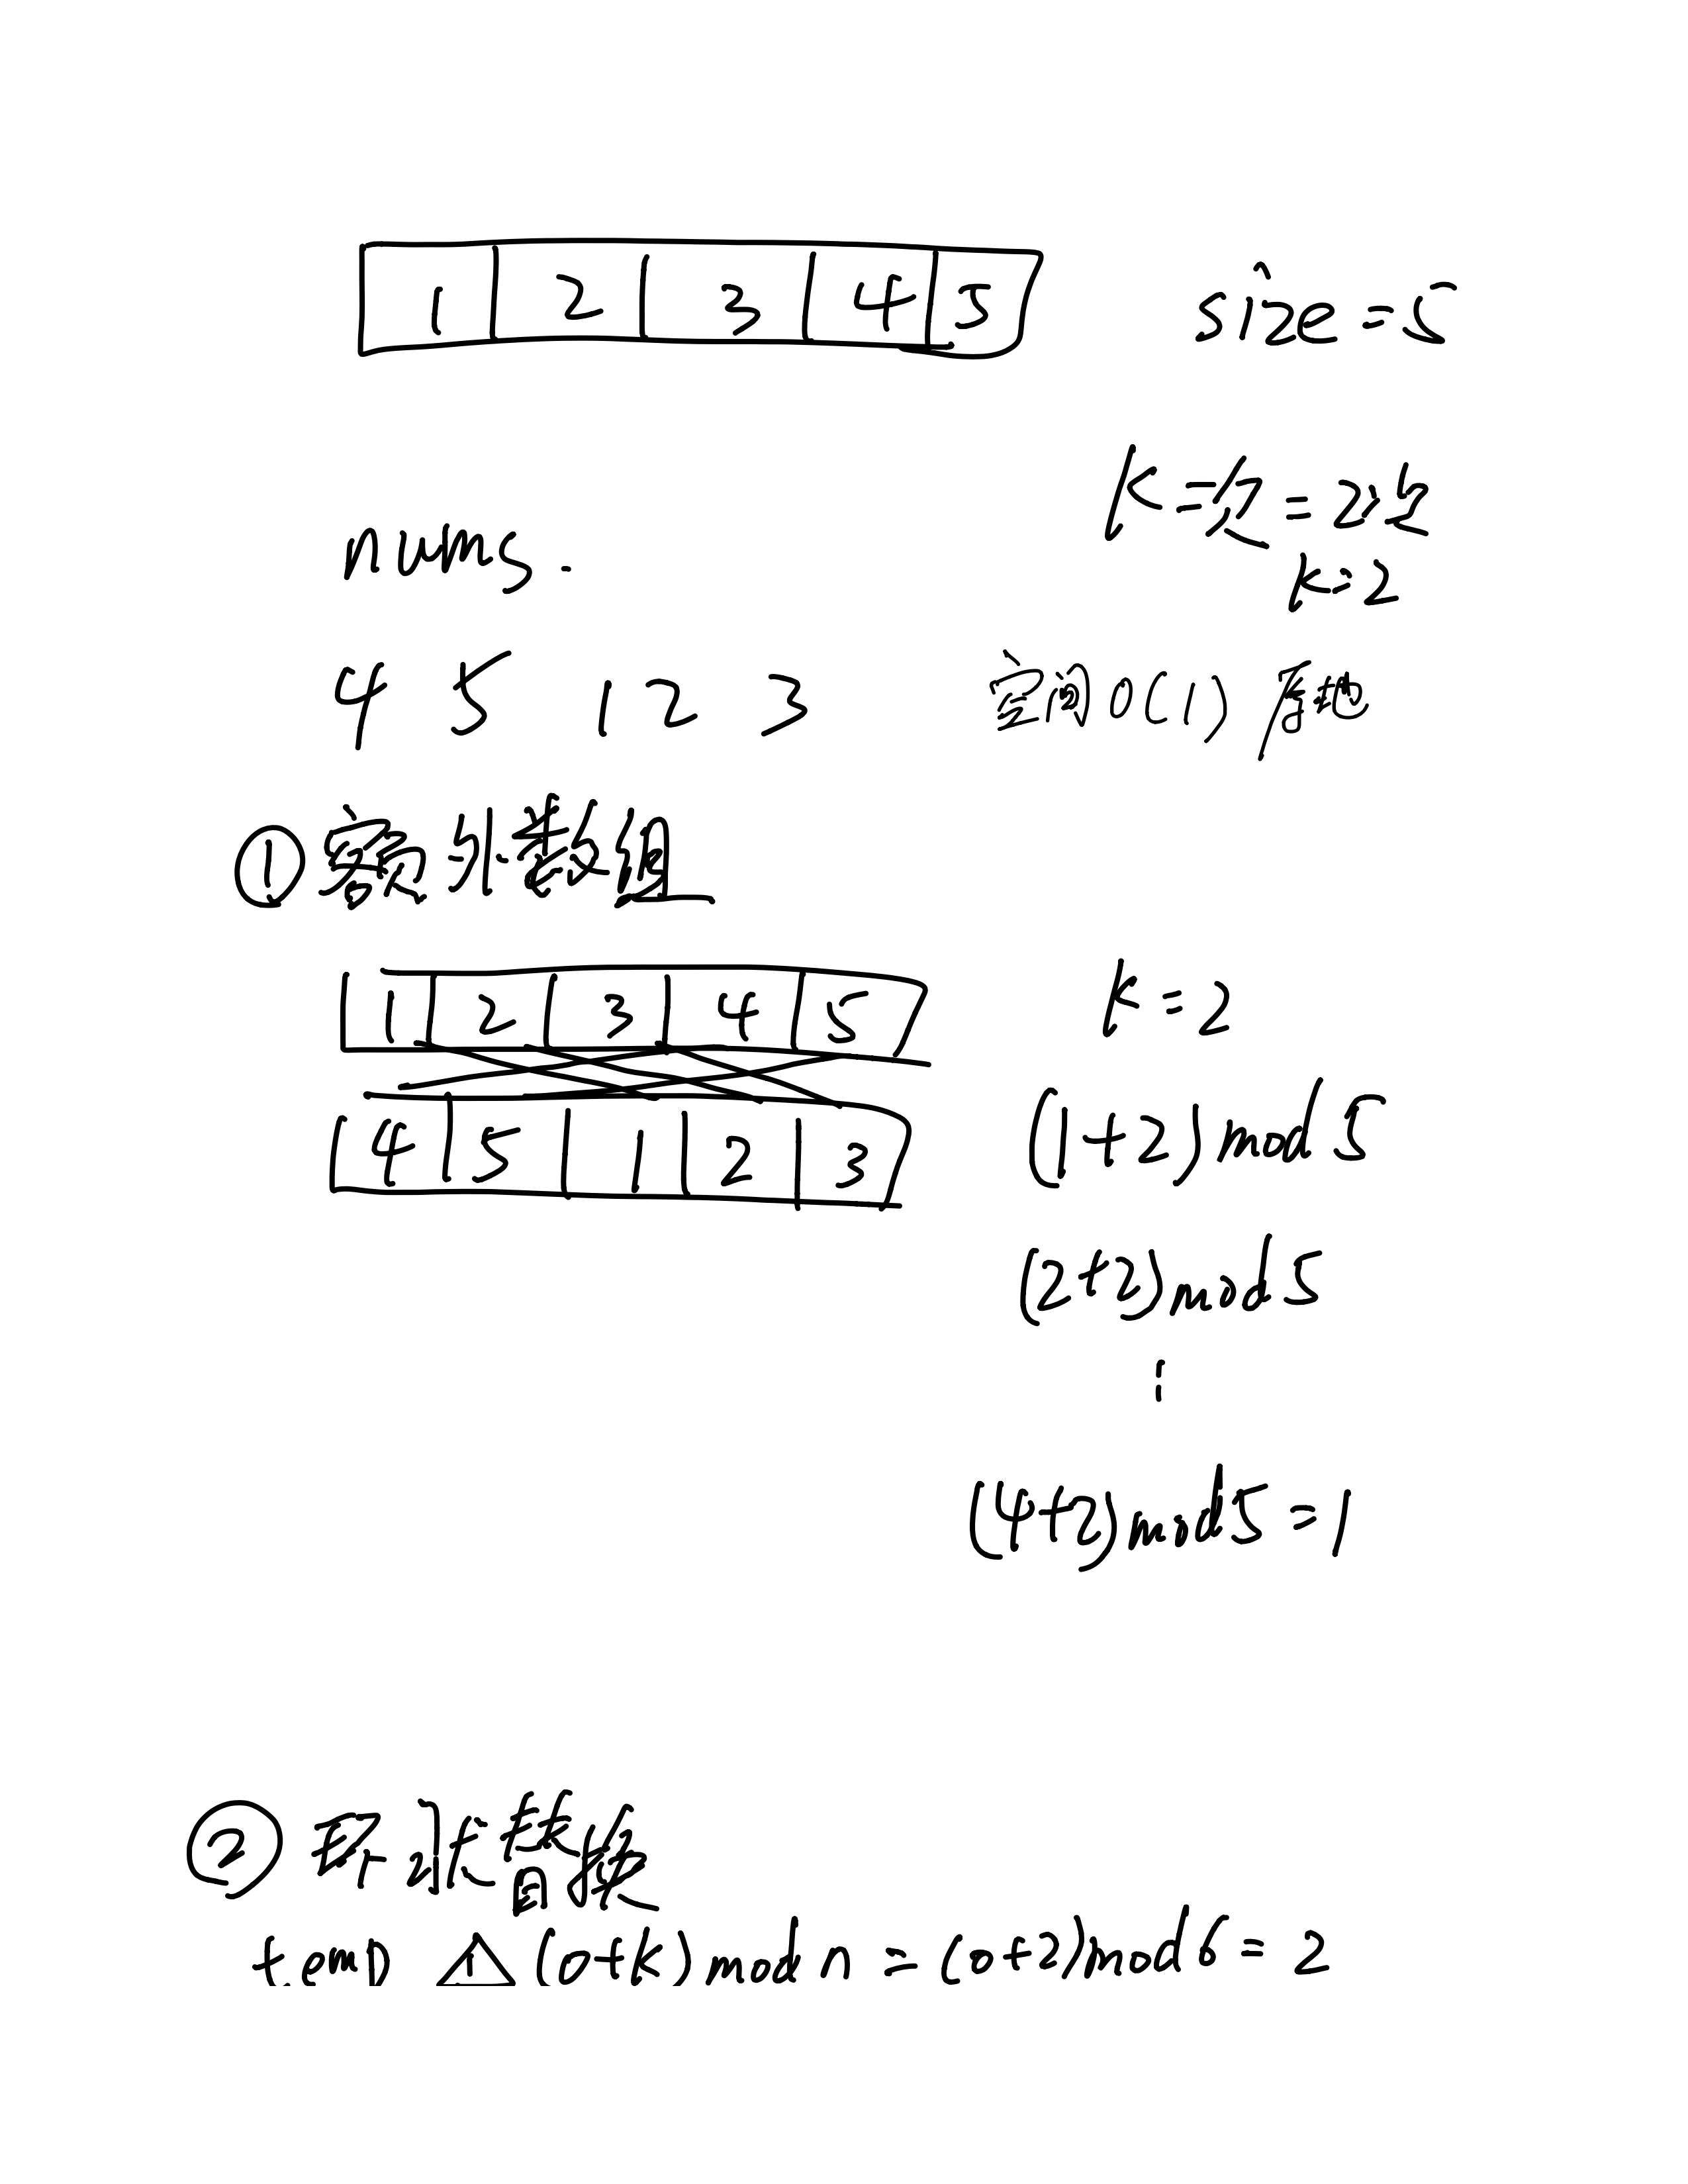 1 2 3 4 5 size=5
K=次=2次
nums. k=2
4 5 1 2 3 空间O(1) 原地
①额外数组
1 2 3 4 5 k=2
4 5 1 2 3 (1+2)mod5
(2+2)mod5
⋮
(4+2)mod5=1
②环状替换
temp 1 (0+k)mod n=(0+2)mod6=2